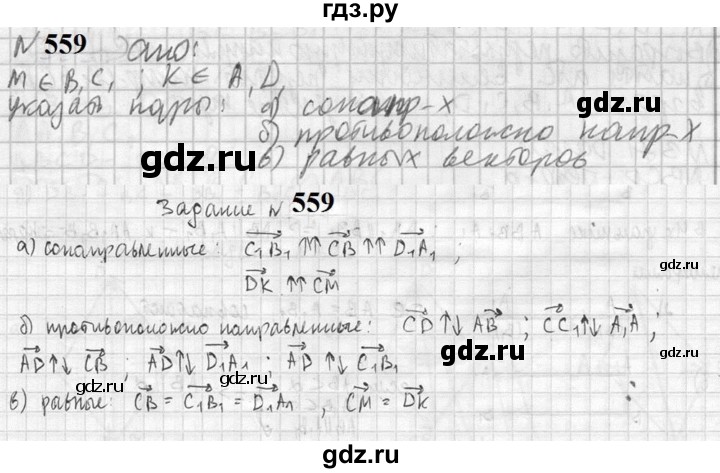 гдз.ру
№ 559 Дано:
M ∈ B₁C₁ ; K ∈ A₁D₁
указать пары: а) сонапр-х
б) противоположно напр-х
в) равных векторов
gdz.ru
gdz.ru
gdz.ru
Задание № 559
а) сонаправленные: C₁B₁ ↑↑ CB ↑↑ D₁A₁ ;
DK ↑↑ CM
б) противоположно направленные: CD ↑↓ AB ; CC₁ ↑↓ A₁A ;
AD ↑↓ CB ; AD ↑↓ D₁A₁ ; AD ↑↓ C₁B₁
в) равные: CB = C₁B₁ = D₁A₁ , CM = DK
gdz.ru
gdz.ru
gdz.ru